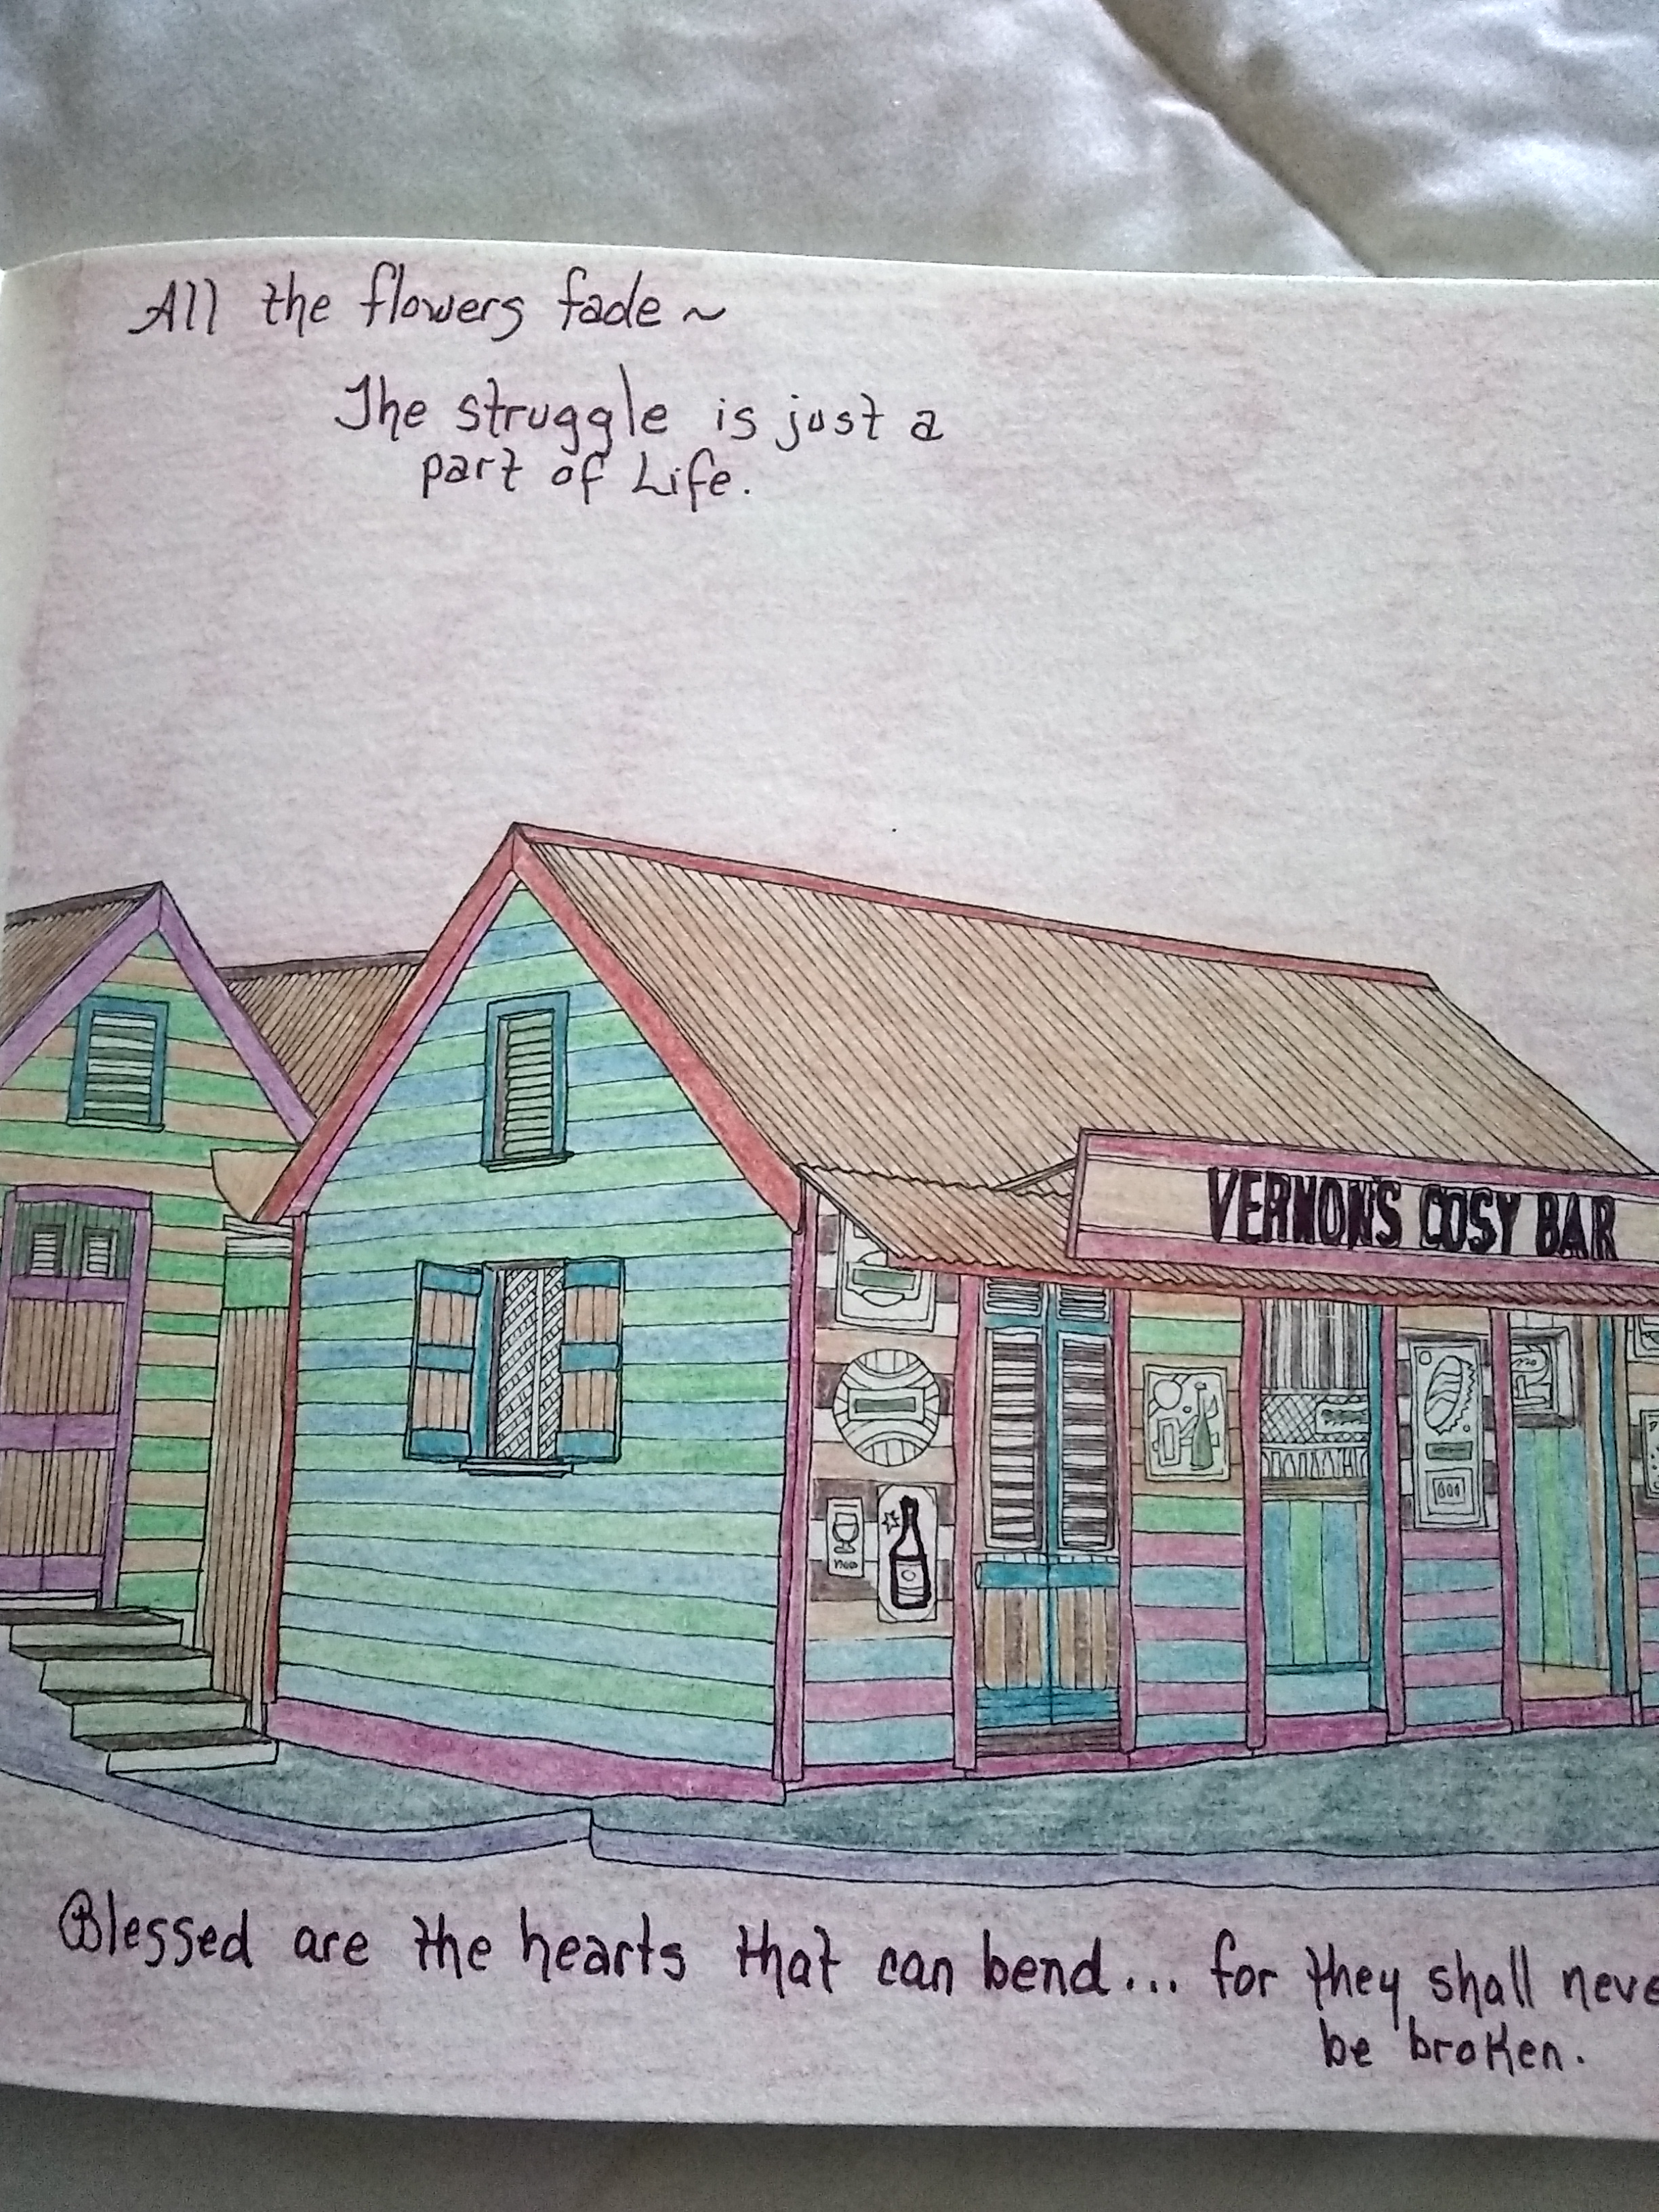 All the flowers fade ~
The struggle is just a
part of Life.
VERNON'S COSY BAR
Blessed are the hearts that can bend... for they shall neve
be broken.